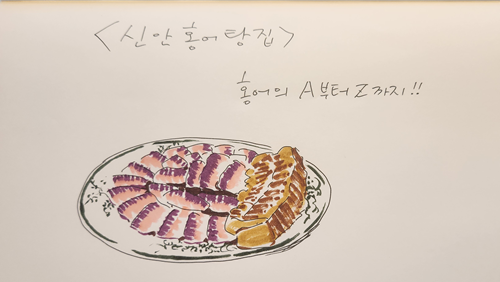 <신안 홍어탕집>
홍어의 A부터 Z까지!!